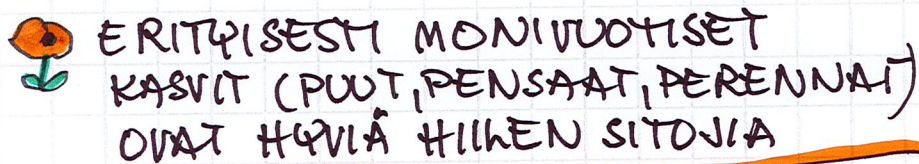 ERITYISESTI MONIVUOTISET
KASVIT (PUUT, PENSAAT, PERENNAT)
OVAT HYVIÄ HIILEN SITOJIA